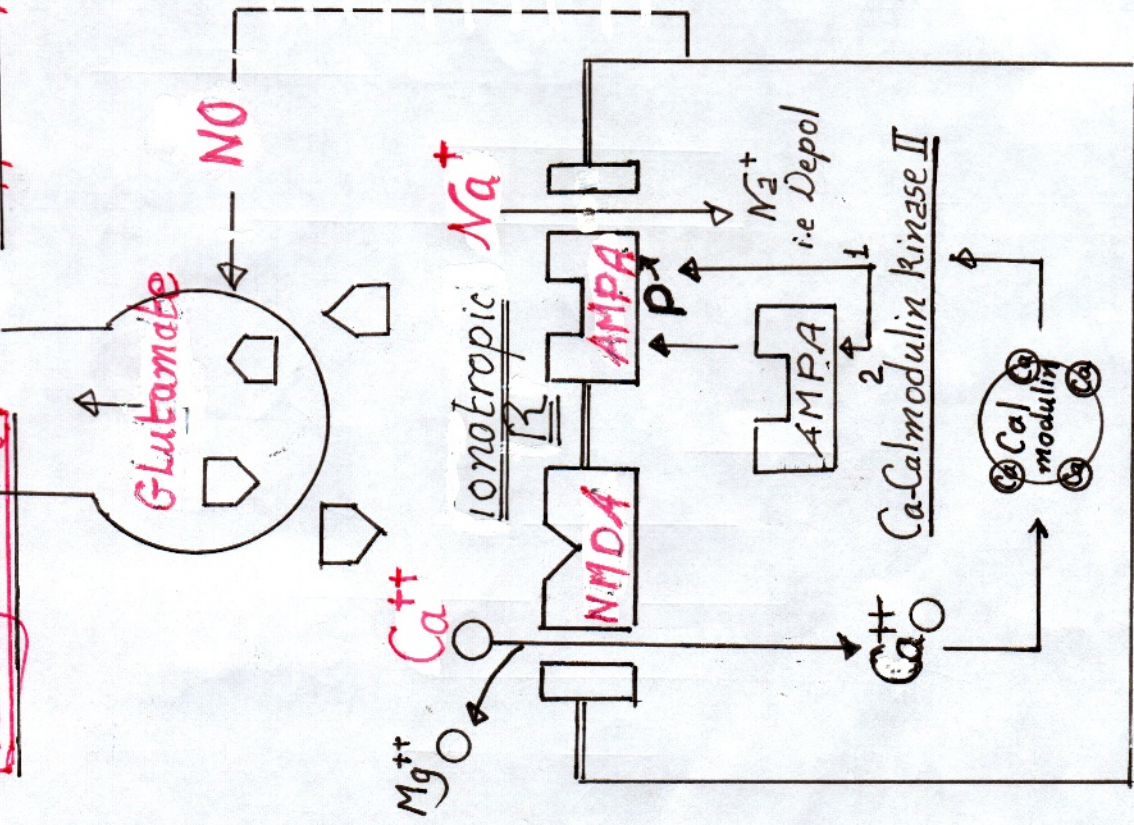 NO
GLutamate
Na⁺
Ca⁺⁺
Mg⁺⁺
ionotropic
R
NMDA
AMPA
P
Na⁺
i.e Depol
AMPA
1
2
Ca-Calmodulin kinase II
Ca⁺⁺
Cal
modulin
Ca
Ca
Ca
Ca